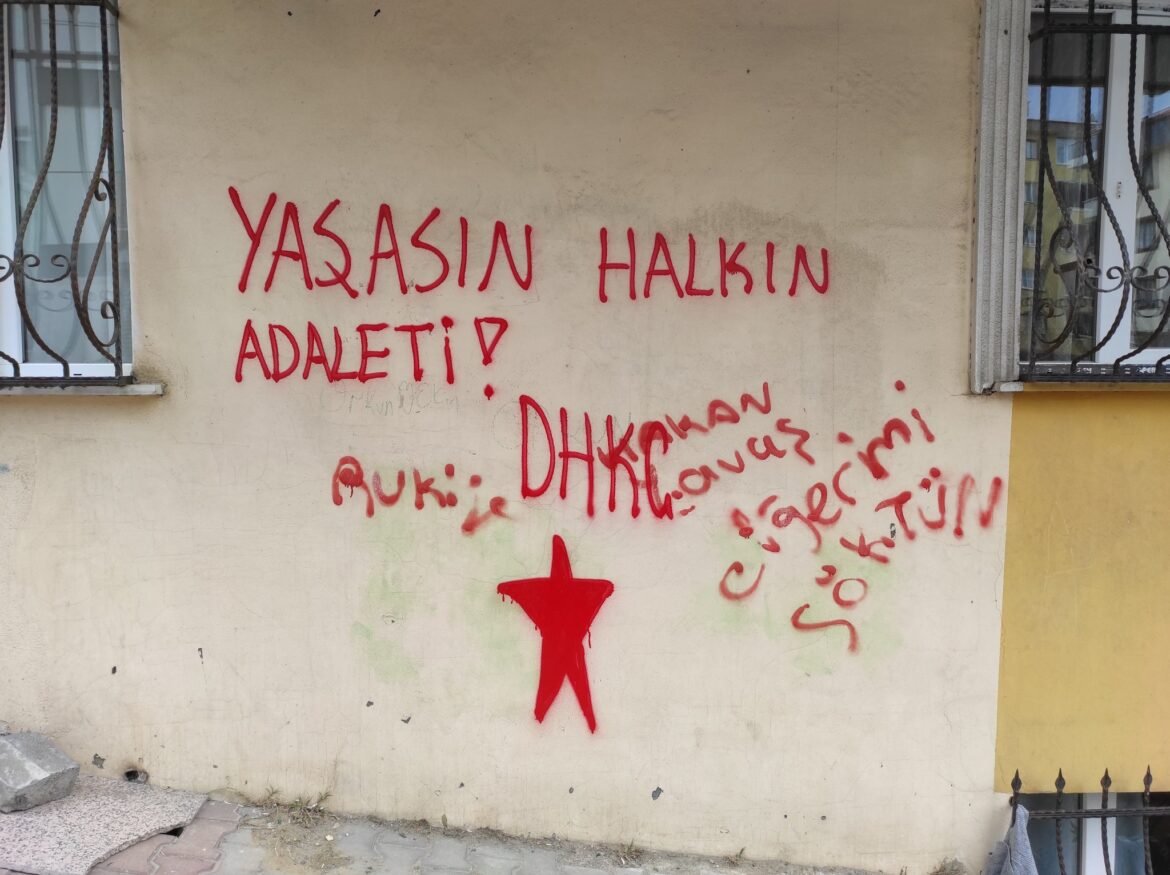 YAŞASIN HALKIN
ADALETİ!
DHKC
HAKAN
Rukije
Yavaş
Ciğerimi
SÖKTÜN